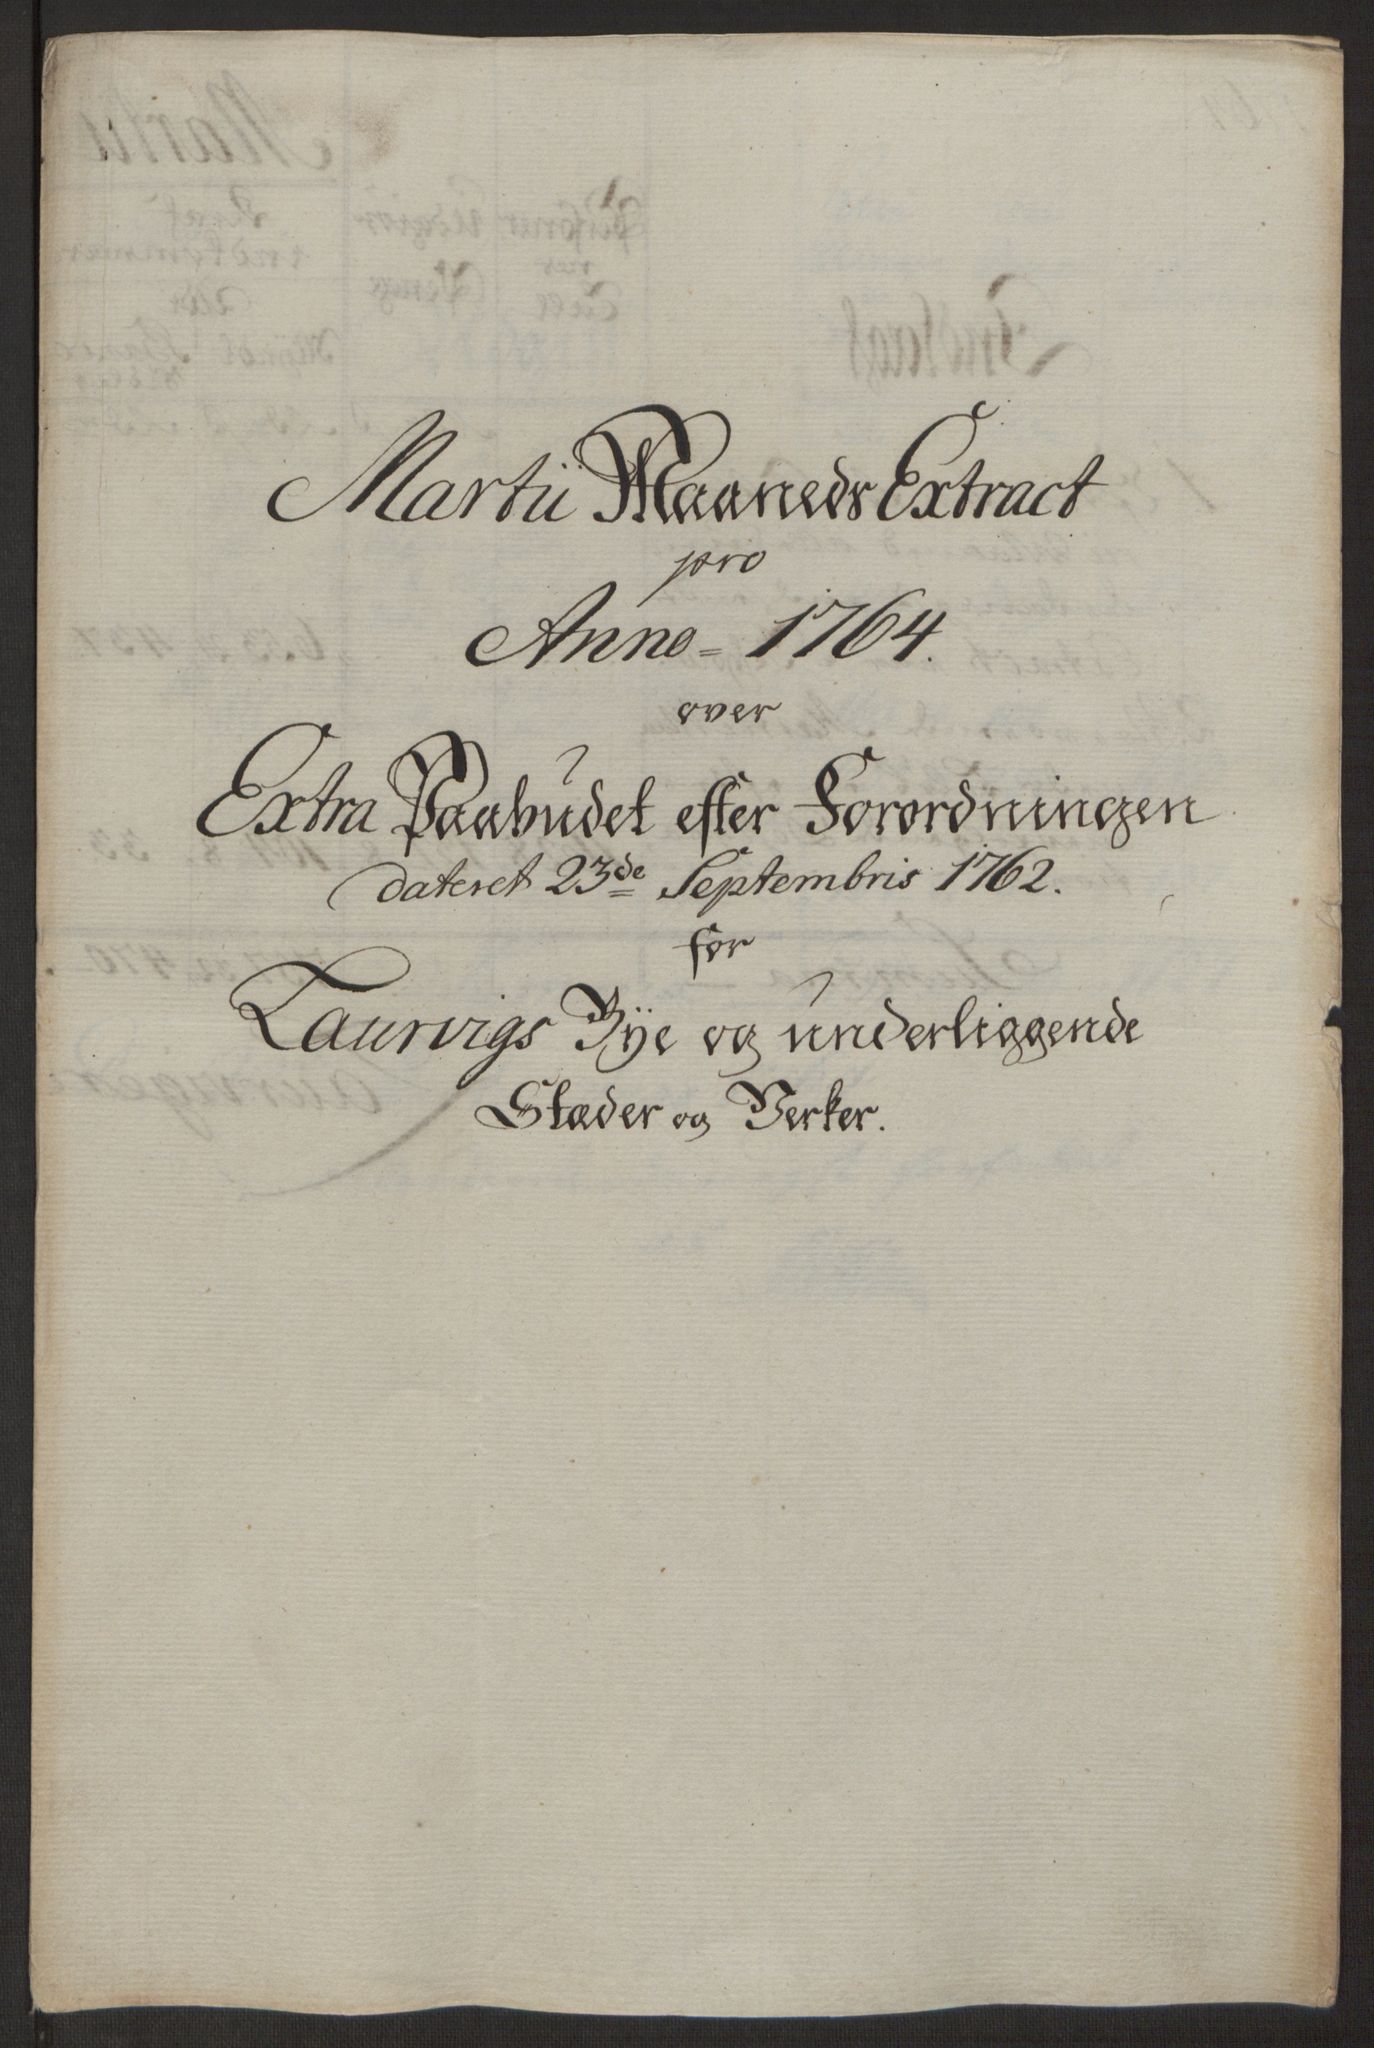 Martii Maaneds Extract
pro
Anno = 1764.
over
Extra Paabudet efter Forordningen
dateret 23de Septembris 1762.
for
Laurvigs Bÿe og underliggende
Stæder og Verker.